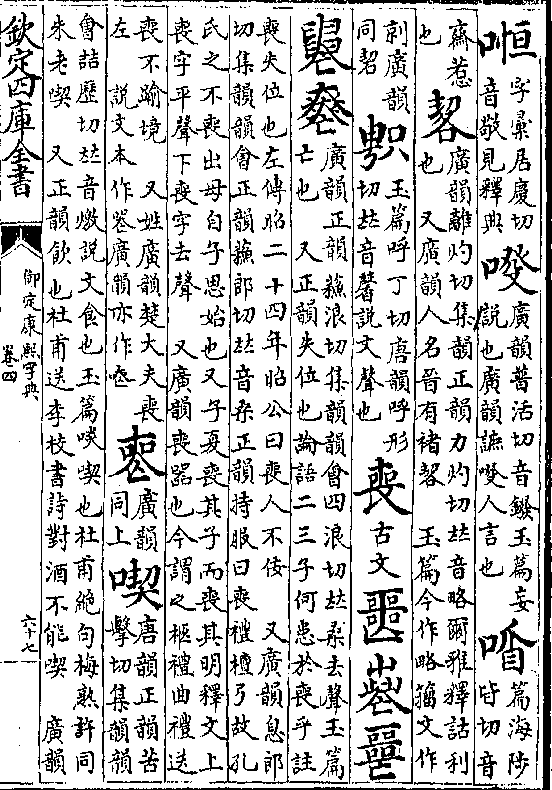 字彙居慶切
音敬見釋典
廣韻普活切音鏺玉篇妄
說也廣韻讌人言也
篇海陟
皆切音
齋惹
也
㗉
廣韻離灼切集韻正韻力灼切𠀤音略爾雅釋詁利
也 又廣韻人名晉有褚㗉 玉篇今作略籀文作
剠廣韻
同㗉
玉篇呼丁切唐韻呼形
切𠀤音馨說文聲也
喪 古文
廣韻正韻蘇浪切集韻韻會四浪切𠀤桑去聲玉篇
亡也 又正韻失位也論語二三子何患於喪乎註
喪失位也左傳昭二十四年昭公曰喪人不佞 又廣韻息郎
切集韻韻會正韻蘇郎切𠀤音桑正韻持服曰喪禮檀弓故孔
氏之不喪出母自子思始也又子夏喪其子而喪其明釋文上
喪字平聲下喪字去聲 又廣韻喪器也今謂之柩禮曲禮送
喪不踰境 又姓廣韻楚大夫喪
左 說文本作廣韻亦作
廣韻
同上
喫
唐韻正韻苦
擊切集韻韻
會詰歷切𠀤音燩說文食也玉篇啖喫也杜甫絶句梅熟許同
朱老喫 又正韻飲也杜甫送李校書詩對酒不能喫 廣韻
欽定四庫全書
御定康熙字典
卷四
六十七